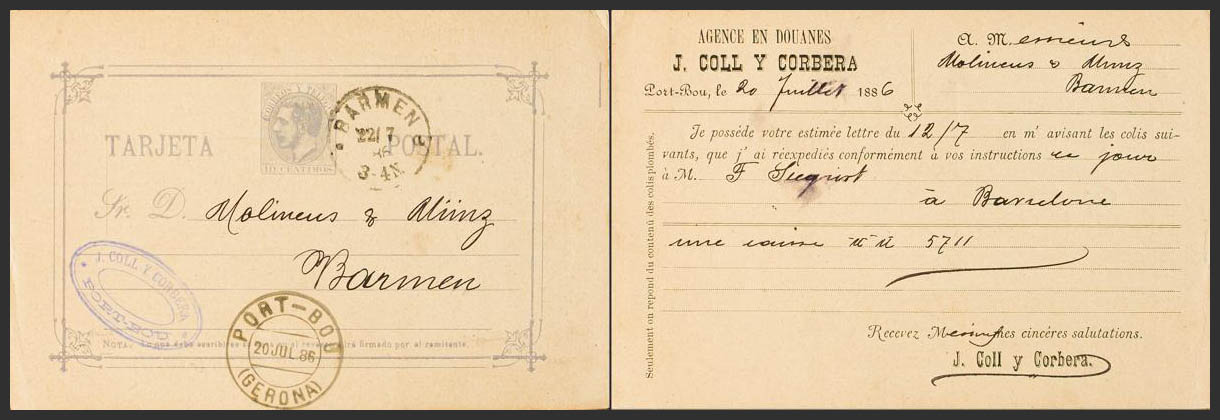 CORREOS Y TELEGS
10 CENTIMOS
BARMEN
22/7
86
8-4N
TARJETA POSTAL.
Sr. D. Molineus & Münz
Barmen
J. COLL Y CORBERA
PORT-BOU
PORT-BOU
20 JUL. 86
(GERONA)
NOTA. Lo que debe escribirse firmado por el remitente.
AGENCE EN DOUANES
J. COLL Y CORBERA
Port-Bou, le 20 Juillet 1886
A. Messieurs
Molineus & Münz
Barmen
Je posséde votre estimée lettre du 12/7 en m' avisant les colis sui-
vants, que j' ai réexpediés conformément à vos instructions ce jour
à M. F
à Barcelone
une caisse 5711
Recevez M es cincéres salutations.
J. Coll y Corbera.
Seulement on repond du contenú des colis plombés.